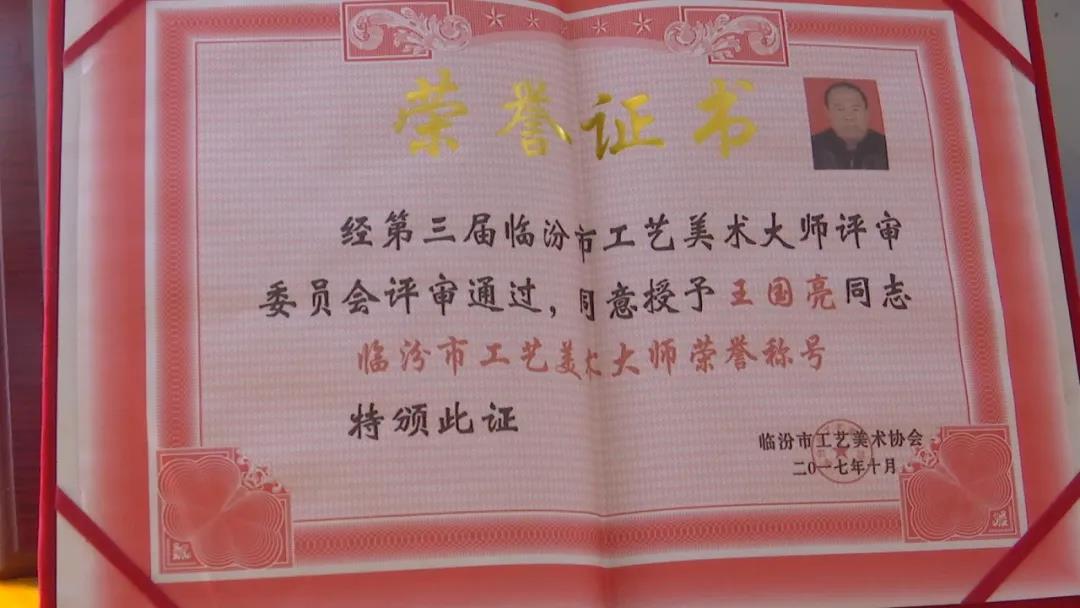 荣誉证书
经第三届临汾市工艺美术大师评审
委员会评审通过，同意授予王国亮同志
临汾市工艺美术大师荣誉称号
特颁此证
临汾市工艺美术协会
二〇一七年十月